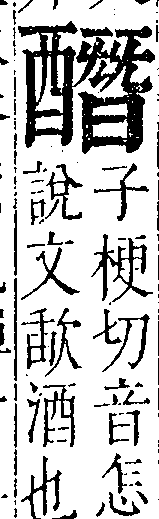 子梗切音怎
說文歃酒也